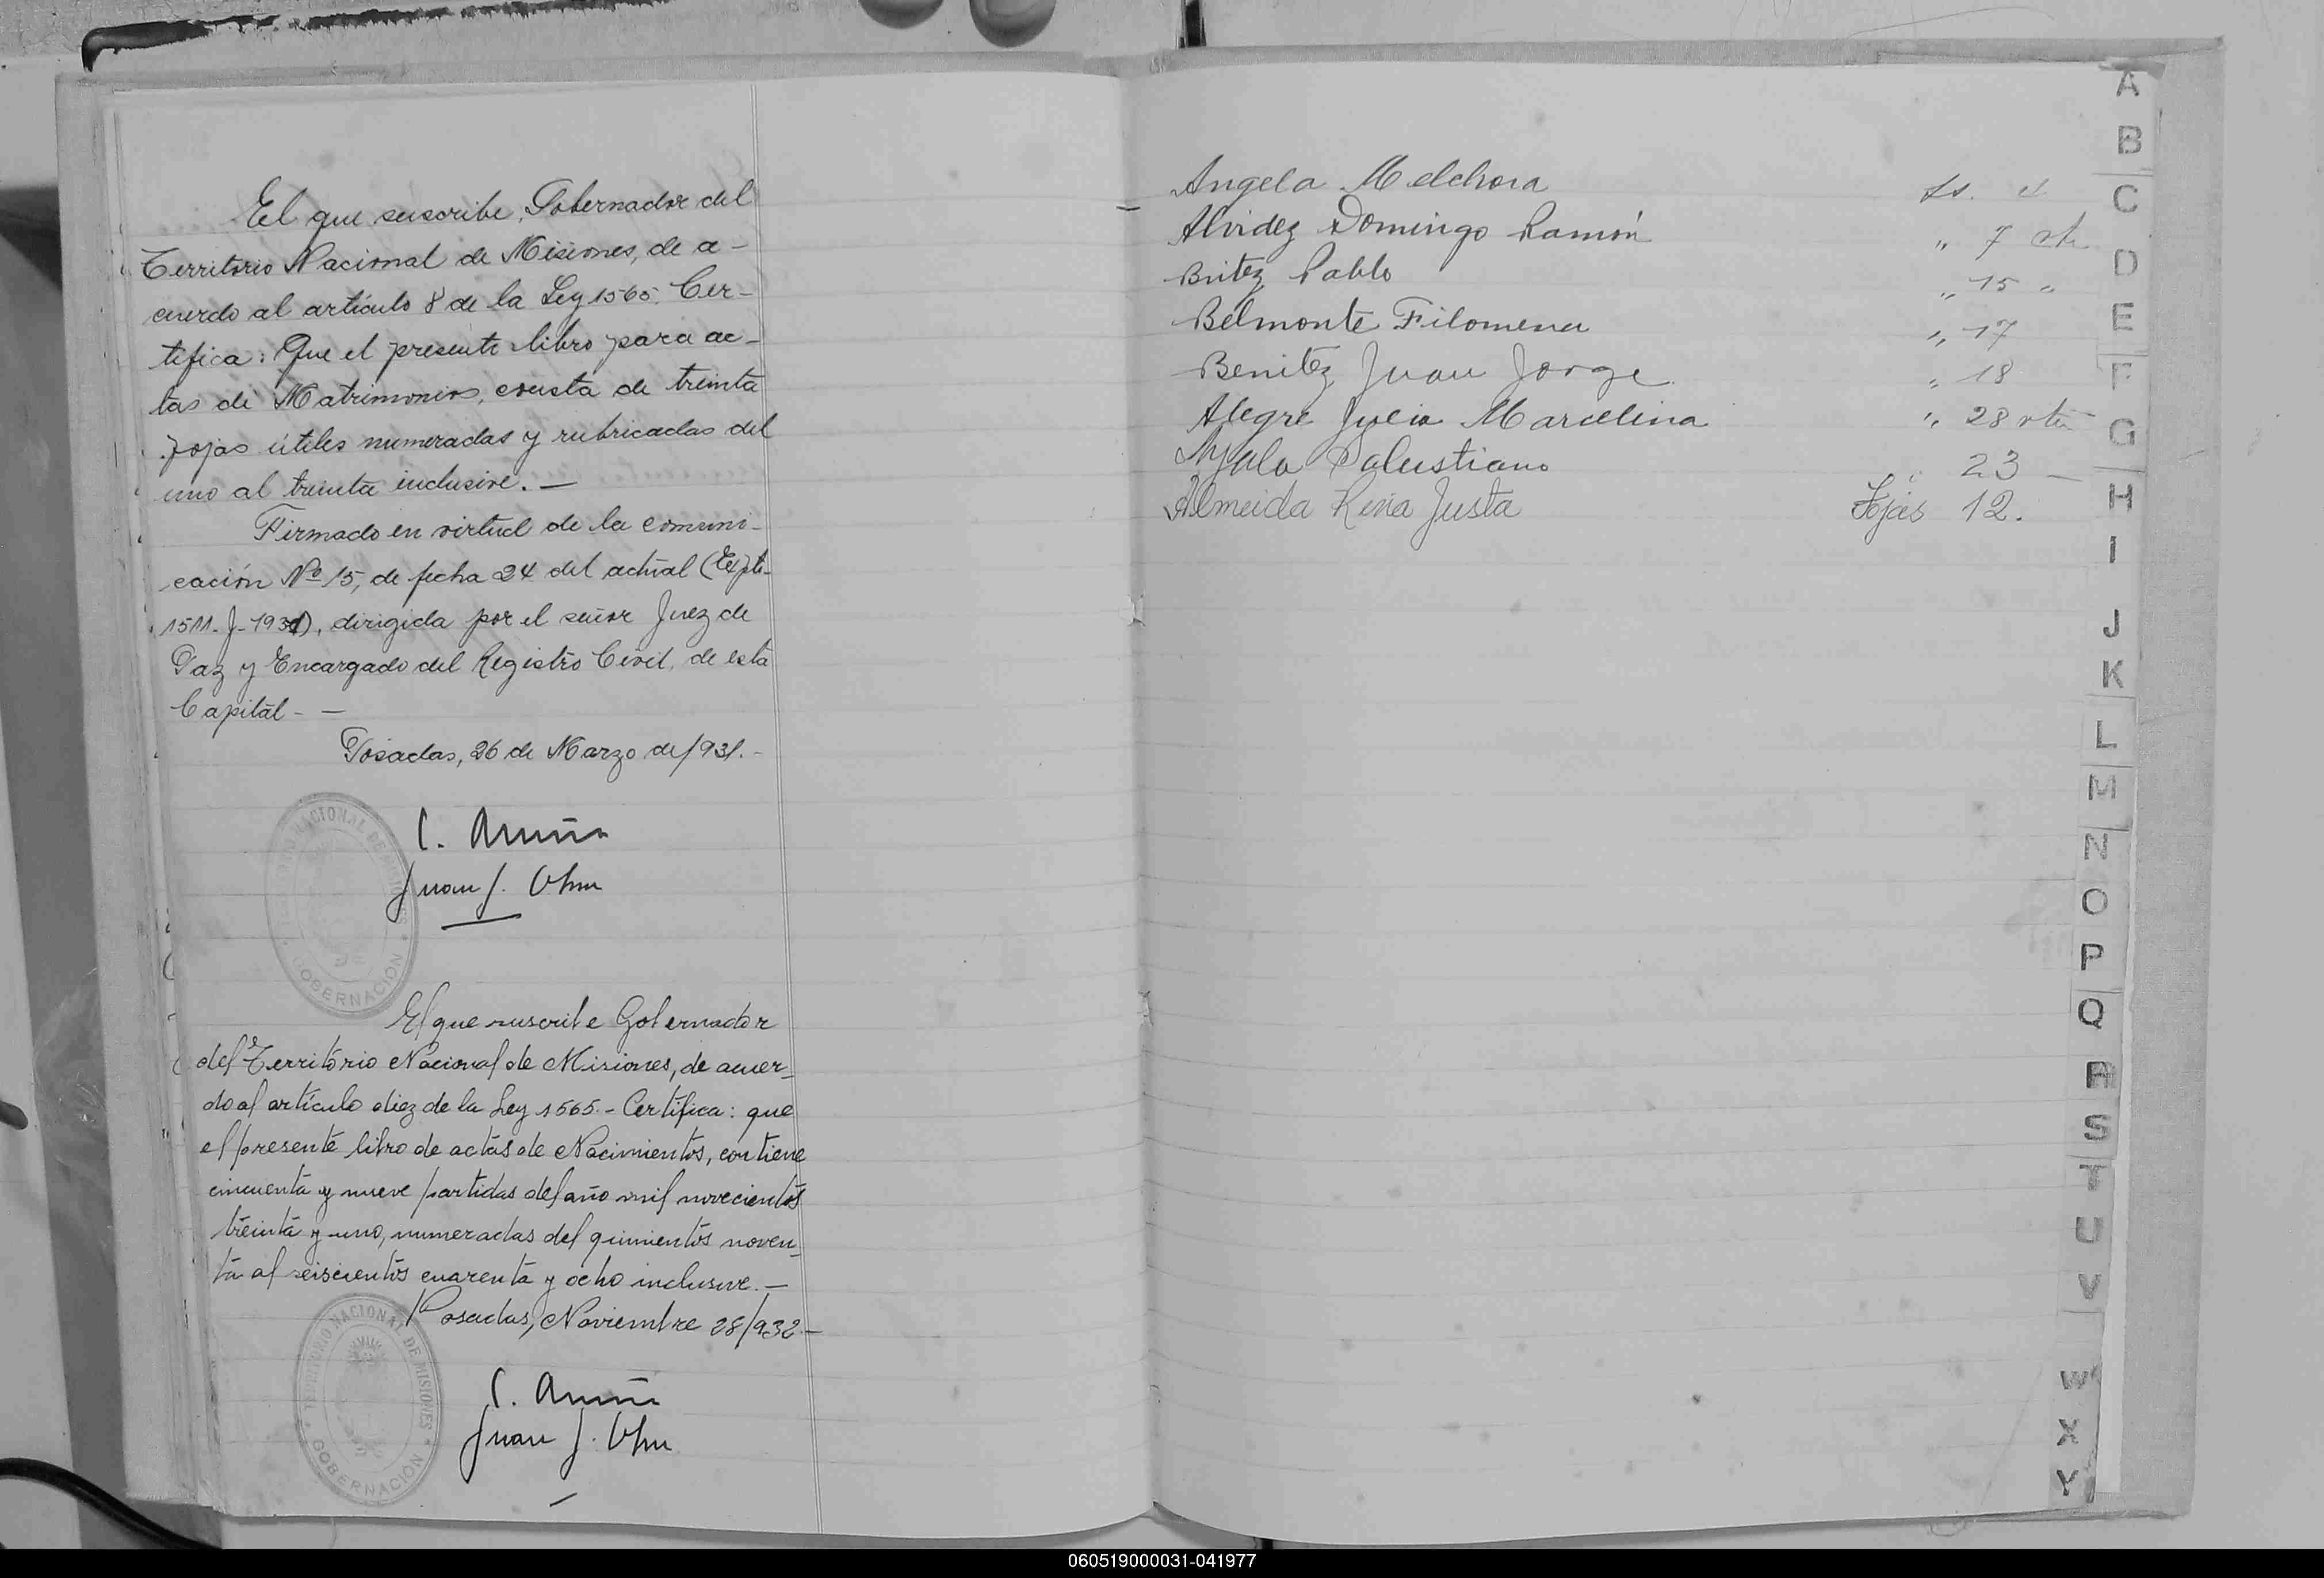 El que suscribe, Gobernador del
Territorio Nacional de Misiones, de a-
cuerdo al artículo 8 de la Ley 1565. Cer-
tifica: Que el presente libro para ac-
tas de Matrimonios, consta de treinta
fojas útiles numeradas y rubricadas del
uno al treinta inclusive. —
Firmado en virtud de la comuni-
cación Nº 15, de fecha 24 del actual (Expte.
1511-J-1931), dirigida por el señor Juez de
Paz y Encargado del Registro Civil, de esta
Capital - —
Posadas, 26 de Marzo de 1931.-
C. Acuña
Juan J.
TERRITORIO NACIONAL DE MISIONES
GOBERNACIÓN
El que suscribe Gobernador
del Territorio Nacional de Misiones, de acuer-
do al artículo diez de la Ley 1565.- Certifica: que
el presente libro de actas de Nacimientos, contiene
cincuenta y nueve partidas del año mil novecientos
treinta y uno, numeradas del quinientos noven-
ta al seiscientos cuarenta y ocho inclusive.—
Posadas, Noviembre 28/932.—
C. Acuña
Juan J.
TERRITORIO NACIONAL DE MISIONES
GOBERNACIÓN
Angela Melchora
Alvidez Domingo Ramón " 7
Britez Pablo " 15 "
Belmonte Filomena " 17
Benitez Juan Jorge " 18
Alegre Julia Marcelina " 28 vta
Ayala Salustiano " 23 —
Almeida Rina Justa Fojas 12.
A
B
C
D
E
F
G
H
I
J
K
L
M
N
O
P
Q
R
S
T
U
V
W
X
Y
060519000031-041977